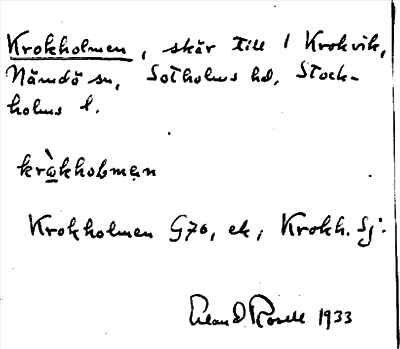 Krokholmen, skär till 1 Krokvik,
Nämdö sn, Sotholms hd, Stock-
holms l.
kròkholmen
Krokholmen G76, ek, Krokh. Sj.
1933